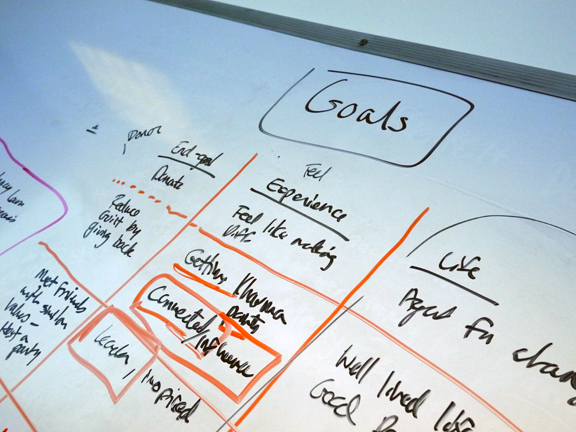 Goals
Donor
End-goal
Donate
Reduce
Guilt by
giving back
Meet friends
with similar
values -
Host a
party
Leader,
Feel
Experience
Feel like making
Diff.
Getting Kharma
points
Connected/
Influence
inspired
Life
Agent Fn chan
Well lived life
Good